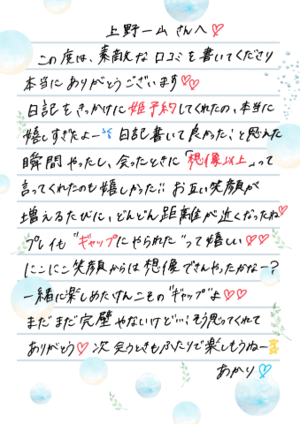 上野一山 さんへ♡
この度は、素敵な口コミを書いてくださり
本当にありがとうございます♡♡
日記をきっかけに姫予約してくれたの、本当に
嬉しすぎたよー 日記書いて良かった！と思えた
瞬間やったし、会ったときに「想像以上」って
言ってくれたのも嬉しかった!! お互い笑顔が
増えるたびに、どんどん距離が近くなったね♡
プレイも"ギャップにやられた"って嬉しい♡♡
にこにこ笑顔からは想像できんやったかなー？
一緒に楽しめたけんこその"ギャップ"よ♡♡
まだまだ完璧やないけど…、そう思ってくれて
ありがとう♡ 次会うときもふたりで楽しもうねー
あかり♡